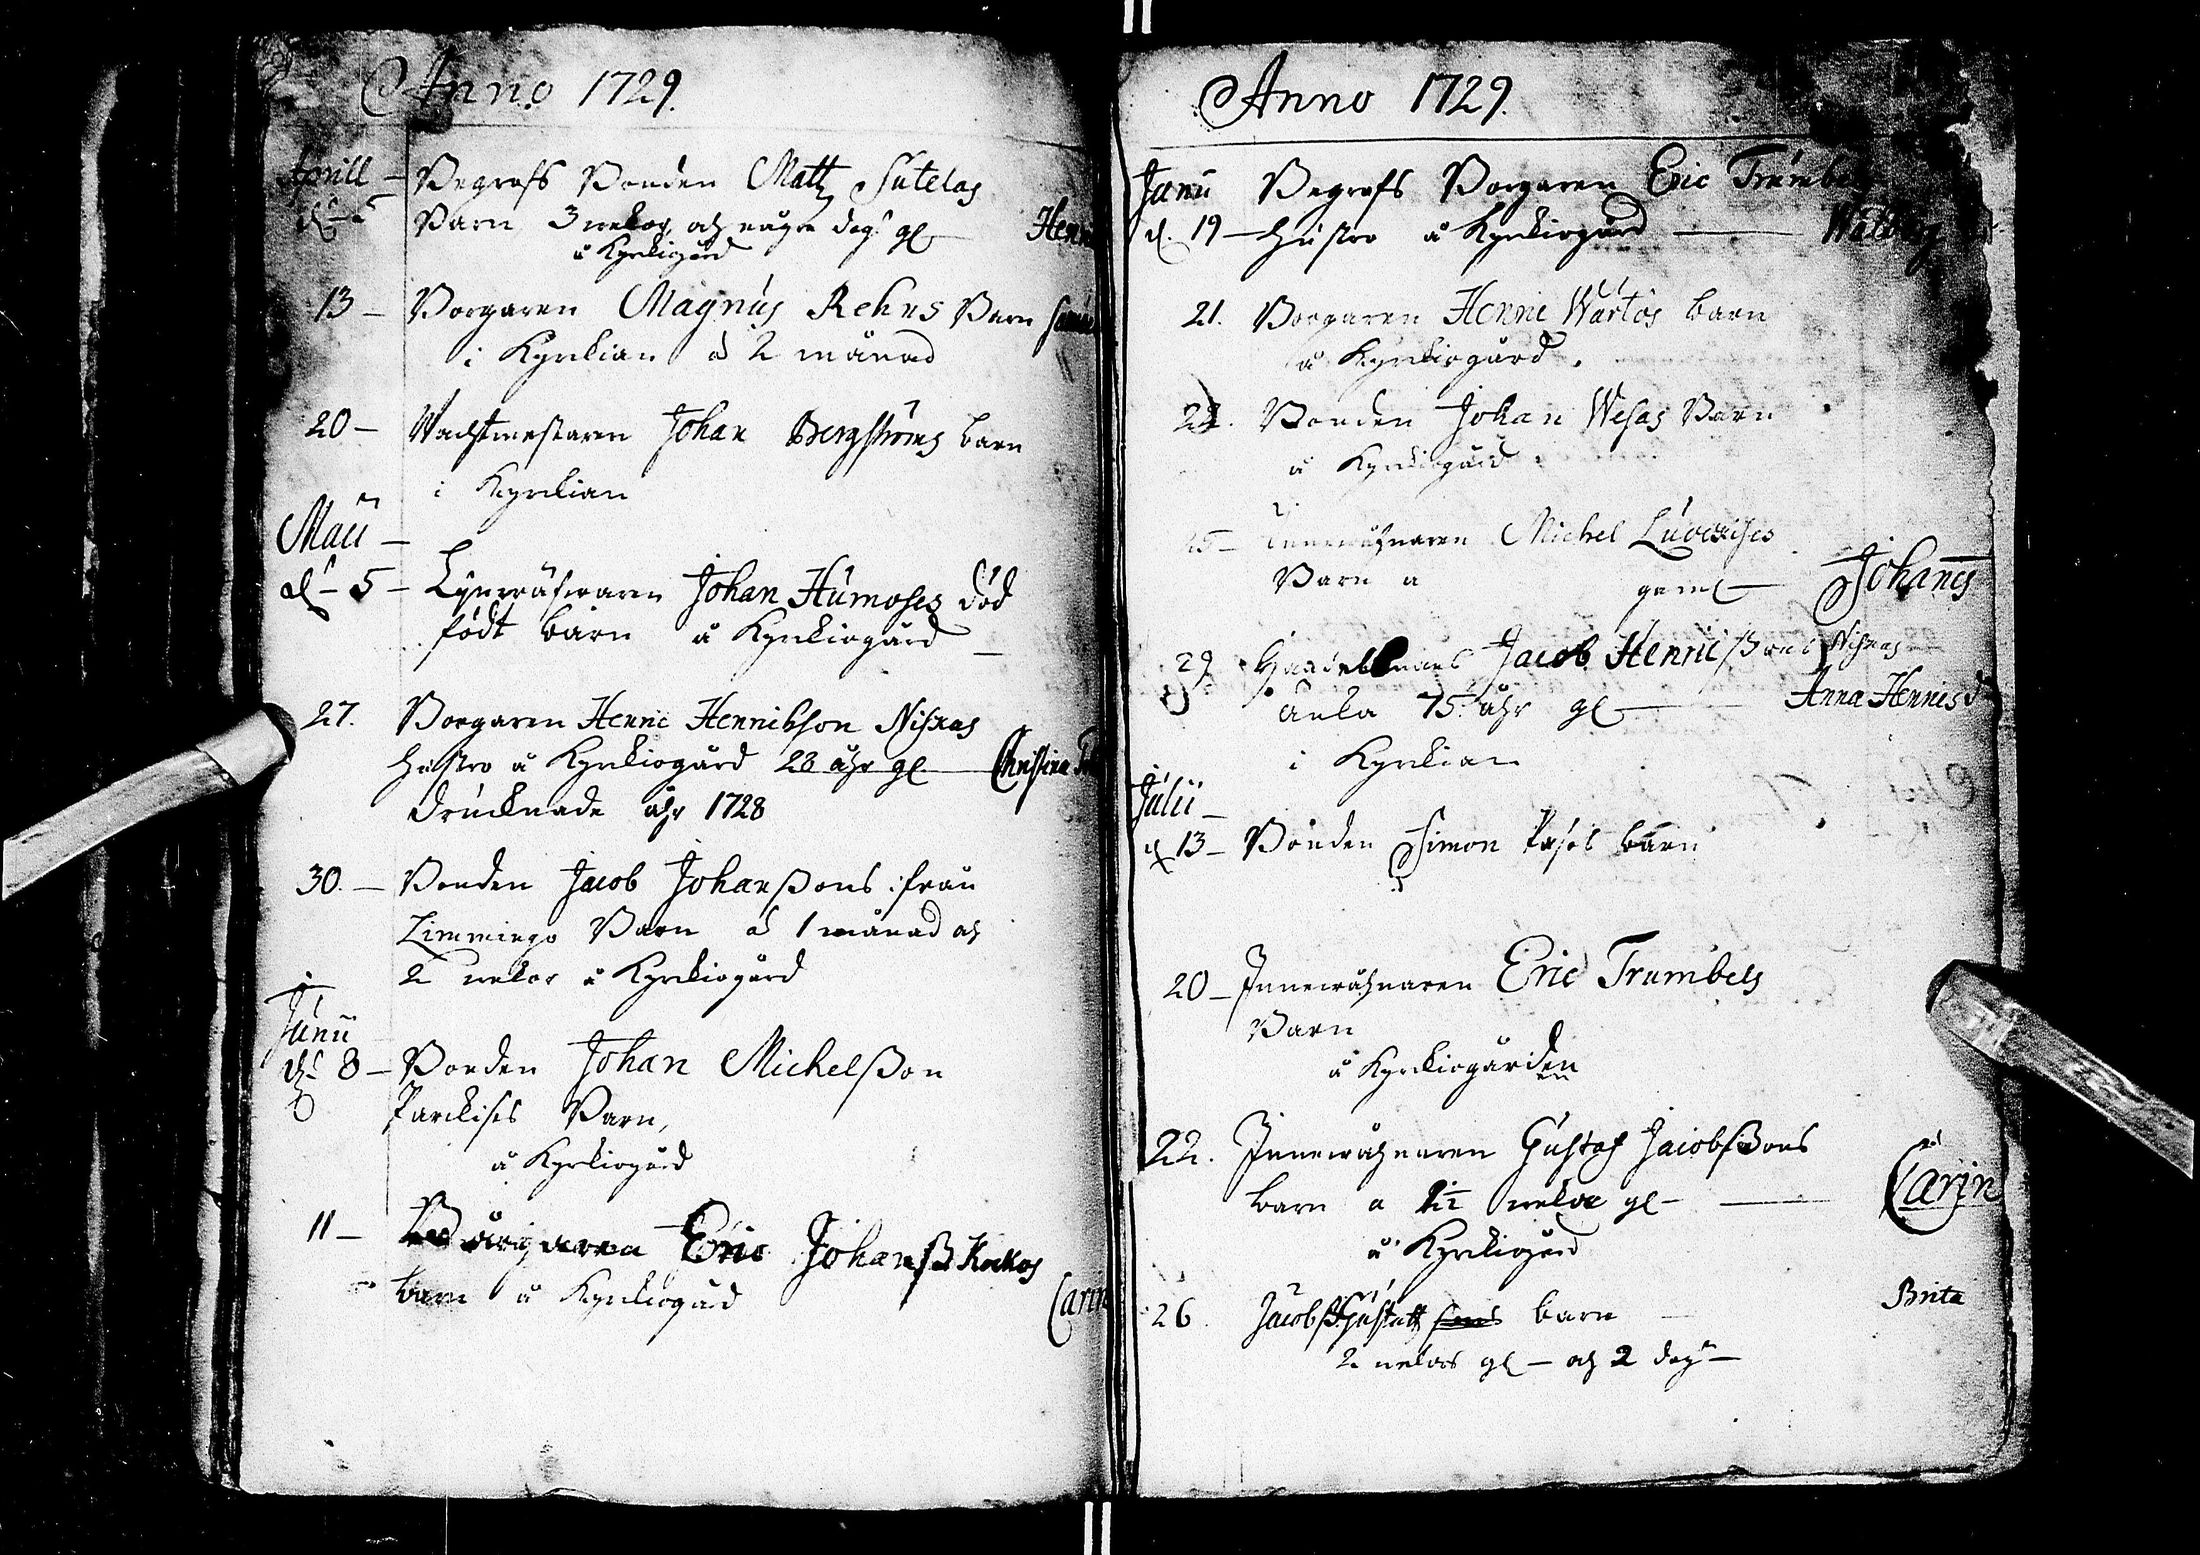 Anno 1729.
Aprill — Begrofs Bonden Matts Sutelas
d. 5 Barn 3 wekor och någre dag. gl — Henri
å Kyrkiogård
13 — Borgaren Magnus Rehns Barn
i Kyrkian å 2 månad
20 — Wachtmestaren Johan Bergströms barn
i Kyrkian
Maii —
d. 5 — Johan Humoses död
födt barn å Kyrkiogård —
27. Borgaren Henric Henrichson Niskas
Hustro å Kyrkiogård 28 åhr gl — Christina
Drucknade åhr 1728
30. — Bonden Jacob Johanssons ifrån
Limmingo Barn å 1 månad och
2 wekor å Kyrkiogård
Junii
d. 8 — Bonden Johan Michelsson
Parckises Barn,
å Kyrkiogård
11 — Borgaren Eric Johanss Kockos
barn å Kyrkiogård Carin
Anno 1729.
Junii Begrofs Borgaren Eric Trumbels
d. 19 — Hustro å Kyrkiogård — Walborg
21. Borgaren Henric Wartos barn
å Kyrkiogård.
22. Bonden Johan Wesas Barn
å Kyrkiogård
25 — Innewåhnaren Michel
Barn a gaml — Johannes
29 Handelsmans Jacob Henrichssons Niskas
Enka 75 åhr gl — Anna Henrisd
i Kyrkian
Julii —
d. 13 — Bonden Simon barn
20 — Innewåhnaren Eric Trumbels
Barn
å Kyrkiogården
22. Innewåhnaren Gustaf Jacobssons
barn a wekor gl — Carin
å Kyrkiogård
26. Jacobss Gustaff barn — Brita
2 wekors gl — och 2 dagr —